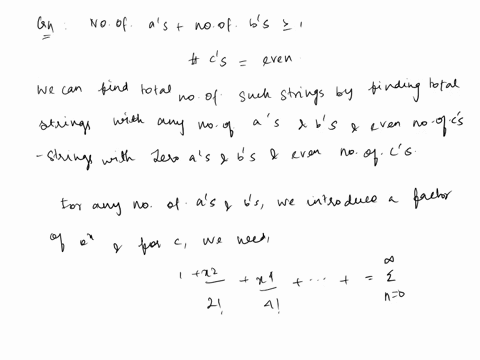 Qn : No. of. a's + no. of. b's ≥ 1
# c's = even
We can find total no. of. such strings by finding total
strings with any no. of a's & b's & even no. of c's
- strings with zero a's & b's & even no. of. c's.
For any no. of. a's & b's, we introduce a factor
of eˣ & for c, we need,
1 + x2/2! + x4/4! + ... + = ∞ Σ n=0